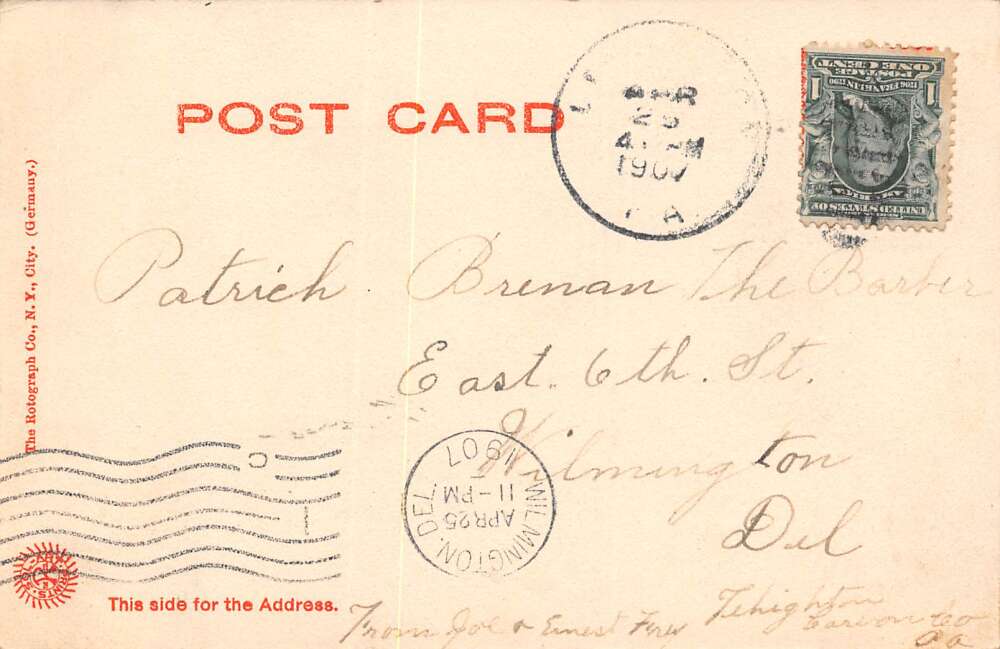 POST CARD
APR
25
4 PM
1907
PA
ONE CENT
POSTAGE
1706 FRANKLIN 1790
1 1
AMERICA
UNITED STATES OF
The Rotograph Co., N. Y., City. (Germany.)
Patrick Brenan The Barber
East. 6th. St.
Wilmington
Del
WILMINGTON, DEL.
APR 25
11-PM
1907
This side for the Address.
From Joe & Ernest
Lehighton
Carbon Co
Pa